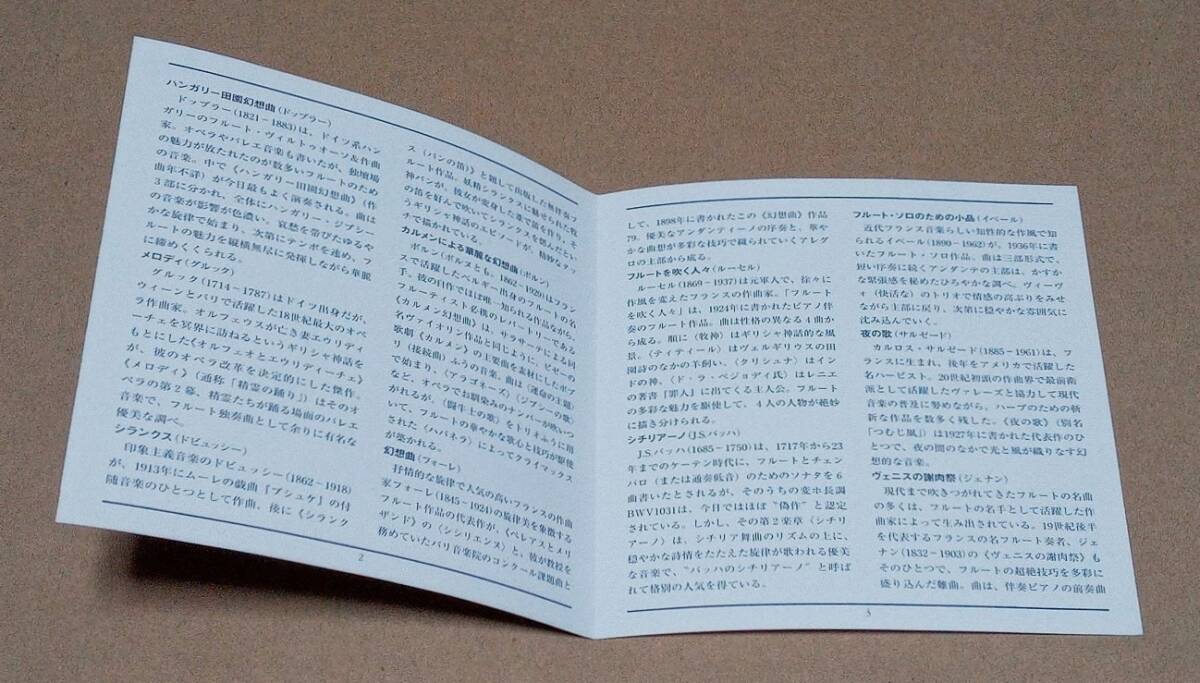 ハンガリー田園幻想曲(ドップラー)
ドップラー(1821-1883)は、ドイツ系ハン
ガリーのフルート・ヴィルトゥオーソ&作曲
家。オペラやバレエ音楽も書いたが、独壇場
の魅力が放たれたのが数多いフルートのため
の音楽。中で《ハンガリー田園幻想曲》(作
曲年不詳)が今日最もよく演奏される。曲は
3部に分かれ、全体にハンガリー・ジプシー
の音楽が影響が色濃い。哀愁を帯びたゆるや
かな旋律で始まり、次第にテンポを速め、フ
ルートの魅力を縦横無尽に発揮しながら華麗
に締めくくられる。
メロディ(グルック)
グルック(1714-1787)はドイツ出身だが、
ウィーンとパリで活躍した18世紀最大のオペ
ラ作曲家。オルフェウスが亡き妻エウリディ
ーチェを冥界に訪ねるというギリシャ神話を
もとにした《オルフェオとエウリディーチェ》
が、彼のオペラ改革を決定的にした傑作。
《メロディ》(通称「精霊の踊り」)はそのオ
ペラの第2幕、精霊たちが踊る場面のバレエ
音楽で、フルート独奏曲として余りに有名な
優美な調べ。
シランクス(ドビュッシー)
印象主義音楽のドビュッシー(1862-1918)
が、1913年にムーレの戯曲『プシュケ』の付
随音楽のひとつとして作曲、後に《シランク
ス(パンの笛)》と題して出版した無伴奏フ
ルート作品。妖精シランクスに魅せられた牧
神パンが、彼女が変身した葦で笛を作り、そ
の笛を好んで吹いてシランクスを偲んだとい
うギリシャ神話のエピソードが、精妙なタッ
チで描かれている。
カルメンによる華麗な幻想曲(ボルン)
ボルン(ボルヌとも。1862-1929)はフラン
スで活躍したベルギー出身のフルートの名
手。彼の自作ではほぼ唯一知られる作品ながら、
フルーティスト必携のレパートリーである
《カルメン幻想曲》は、サラサーテによる同
名ヴァイオリン作品と同じように、ビゼーの
歌劇《カルメン》の主要曲を素材にしたポプ
リ(接続曲)ふうの音楽。曲は〈運命の主題〉
で始まり、〈アラゴネーズ〉〈ジプシーの歌〉
など、オペラでお馴染みのナンバーが歌いつ
がれるが、〈闘牛士の歌〉をトリオふうに用
いて、フルートの華やかな歌心と技巧が駆使
された〈ハバネラ〉によってクライマックス
が築かれる。
幻想曲(フォーレ)
抒情的な旋律で人気の高いフランスの作曲
家フォーレ(1845-1924)の旋律美を象徴する
フルート作品の代表作が、《ペレアスとメリ
ザンド》の〈シシリエンヌ〉と、彼が教授を
務めていたパリ音楽院のコンクール課題曲と
2
して、1898年に書かれたこの《幻想曲》作品
79。優美なアンダンティーノの序奏と、華や
かな曲想が多彩な技巧で織られていくアレグ
ロの主部から成る。
フルートを吹く人々(ルーセル)
ルーセル(1869-1937)は元軍人で、徐々に
作風を変えたフランスの作曲家。「フルート
を吹く人々」は、1924年に書かれたピアノ伴
奏のフルート作品。曲は性格の異なる4曲か
ら成る。順に〈牧神〉はギリシャ神話的な風
景、〈ティティール〉はヴェルギリウスの田
園詩のなかの羊飼い、〈クリシュナ〉はイン
ドの神、〈ド・ラ・ペジョディ氏〉はレニエ
の著書『罪人』に出てくる主人公。フルート
の多彩な魅力を駆使して、4人の人物が絶妙
に描き分けられる。
シチリアーノ(J.S.バッハ)
J.S.バッハ(1685-1750)は、1717年から23
年までのケーテン時代に、フルートとチェン
バロ(または通奏低音)のためのソナタを6
曲書いたとされるが、そのうちの変ホ長調
BWV1031は、今日ではほぼ"偽作"と認定
されている。しかし、その第2楽章〈シチリ
アーノ〉は、シチリア舞曲のリズムの上に、
穏やかな詩情をたたえた旋律が歌われる優美
な音楽で、"バッハのシチリアーノ"と呼ば
れて格別の人気を得ている。
フルート・ソロのための小品(イベール)
近代フランス音楽らしい知性的な作風で知
られるイベール(1890-1962)が、1936年に書
いたフルート・ソロ作品。曲は三部形式で、
短い序奏に続くアンダンテの主部は、かすか
な緊張感を秘めたひろやかな調べ。ヴィーヴ
ィ(快活な)のトリオで情感の高ぶりをみせ
ながら主部に戻り、次第に穏やかな雰囲気に
沈み込んでいく。
夜の歌(サルゼード)
カルロス・サルゼード(1885-1961)は、フ
ランスに生まれ、後年をアメリカで活躍した
名ハーピスト。20世紀初頭の作曲界で最前衛
派として活躍したヴァレーズと協力して現代
音楽の普及に努めながら、ハープのための斬
新な作品を数多く残した。《夜の歌》(別名
「つむじ風」)は1927年に書かれた代表作のひ
とつで、夜の闇のなかで光と風が織りなす幻
想的な音楽。
ヴェニスの謝肉祭(ジェナン)
現代まで吹きつがれてきたフルートの名曲
の多くは、フルートの名手として活躍した作
曲家によって生み出されている。19世紀後半
を代表するフランスの名フルート奏者、ジェ
ナン(1832-1903)の《ヴェニスの謝肉祭》も
そのひとつで、フルートの超絶技巧を多彩に
盛り込んだ難曲。曲は、伴奏ピアノの前奏曲
3